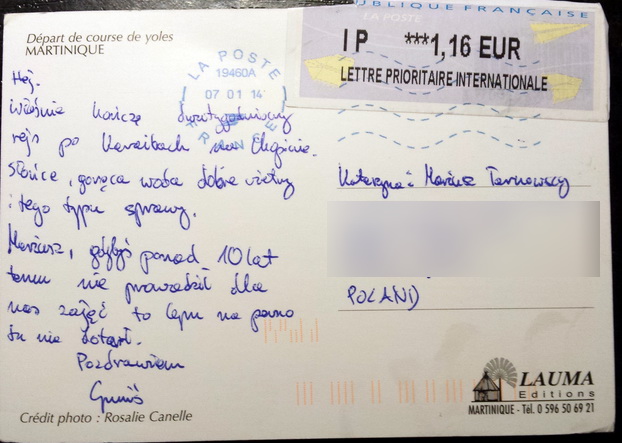 Départ de course de yoles
MARTINIQUE
Hej.
Właśnie kończę dwutygodniowy
rejs po Karaibach na
Słońce, gorąca woda dobre wiatry
i tego typu sprawy.
Mariusz, gdybyś ponad 10 lat
temu nie prowadził dla
nas zajęć to bym na pewno
tu nie dotarł.
Pozdrawiam
Crédit photo : Rosalie Canelle
LA POSTE
19460A
07 01 14
FRANCE
RÉPUBLIQUE FRANÇAISE
LA POSTE
IP ***1,16 EUR
LETTRE PRIORITAIRE INTERNATIONALE
Katarzyna i Mariusz Tarnowscy
POLAND
LAUMA
Editions
MARTINIQUE - Tél. 0 596 50 69 21